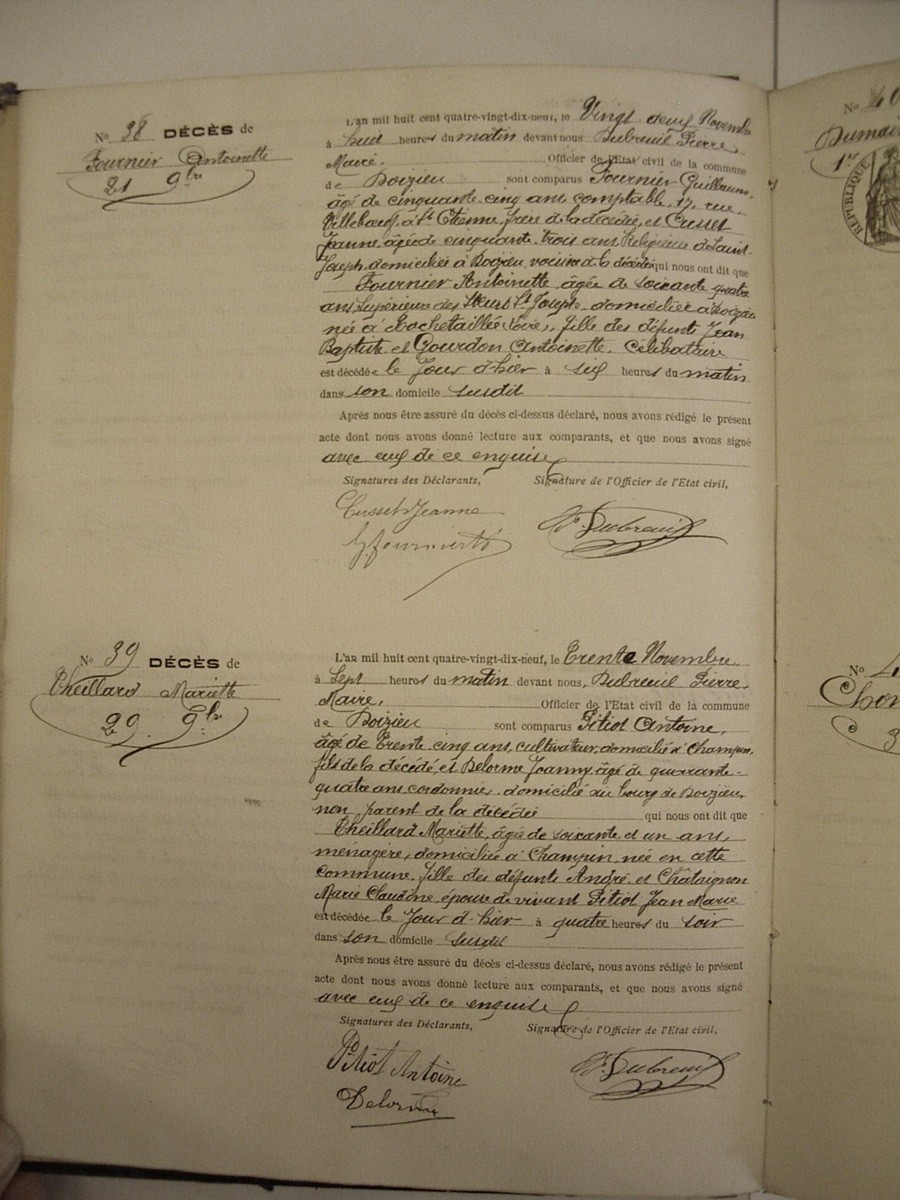 N° 38 DÉCÈS de
Fournier Antoinette
21 9bre
L'an mil huit cent quatre-vingt-dix-neuf, le Vingt deux Novembre
à huit heures du matin devant nous Dubreuil Pierre
Maire. Officier de l'Etat civil de la commune
de Doizieu sont comparus Fournier Guillaume
âgé de cinquante cinq ans comptable, 17, rue
Villebœuf, à St Etienne, frère de la décédée, et Cusset
Jeanne, âgée de cinquante trois ans Religieuse de Saint
Joseph, domiciliée à Doizieu, voisine de la décédée qui nous ont dit que
Fournier Antoinette, âgée de soixante quatre
ans Supérieure des Sœurs St Joseph, domiciliée à Doizieu
née à Rochetaillée (Loire), fille des défunts Jean
Baptiste et Gourdon Antoinette. Célibataire
est décédée le Jour d'hier à six heures du matin
dans son domicile susdit
Après nous être assuré du décès ci-dessus déclaré, nous avons rédigé le présent
acte dont nous avons donné lecture aux comparants, et que nous avons signé
avec eux de ce enquise
Signatures des Déclarants, Signature de l'Officier de l'Etat civil,
Cusset Jeanne
G. fournier P. Dubreuil
N° 39 DÉCÈS de
Cheillard Mariette
29. 9bre
L'an mil huit cent quatre-vingt-dix-neuf, le Trente Novembre.
à Sept heures du matin devant nous, Dubreuil Pierre,
Maire, Officier de l'Etat civil de la commune
de Doizieu sont comparus Pitiot Antoine,
âgé de Trente cinq ans, cultivateur, domicilié à Champin,
fils de la décédé, et Delorme Joanny, âgé de quarante
quatre ans cordonnier, domicilié au bourg de Doizieu,
non parent de la décédée qui nous ont dit que
Cheillard Mariette, âgée de soixante et un ans,
ménagère, domiciliée à Champin, née en cette
commune, fille des défunts André et Chataignon
Marie Claudine épouse de vivant Pitiot Jean Marie
est décédée le Jour d'hier à quatre heures du soir
dans son domicile susdit
Après nous être assuré du décès ci-dessus déclaré, nous avons rédigé le présent
acte dont nous avons donné lecture aux comparants, et que nous avons signé
avec eux de ce enquise
Signatures des Déclarants, Signature de l'Officier de l'Etat civil,
Pitiot Antoine P. Dubreuil
Delorme
N° 40
RÉPUBLIQUE
N°